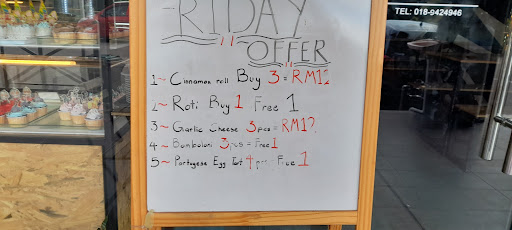 FRIDAY
OFFER
1~ Cinnamon roll Buy 3 = RM12
2~ Roti Buy 1 Free 1
3~ Garlic Cheese 3 pcs = RM12
4~ Bonboloni 3 pcs = Free 1
5~ Portugese Egg Tart 4 pcs Free 1
TEL: 018-9424946